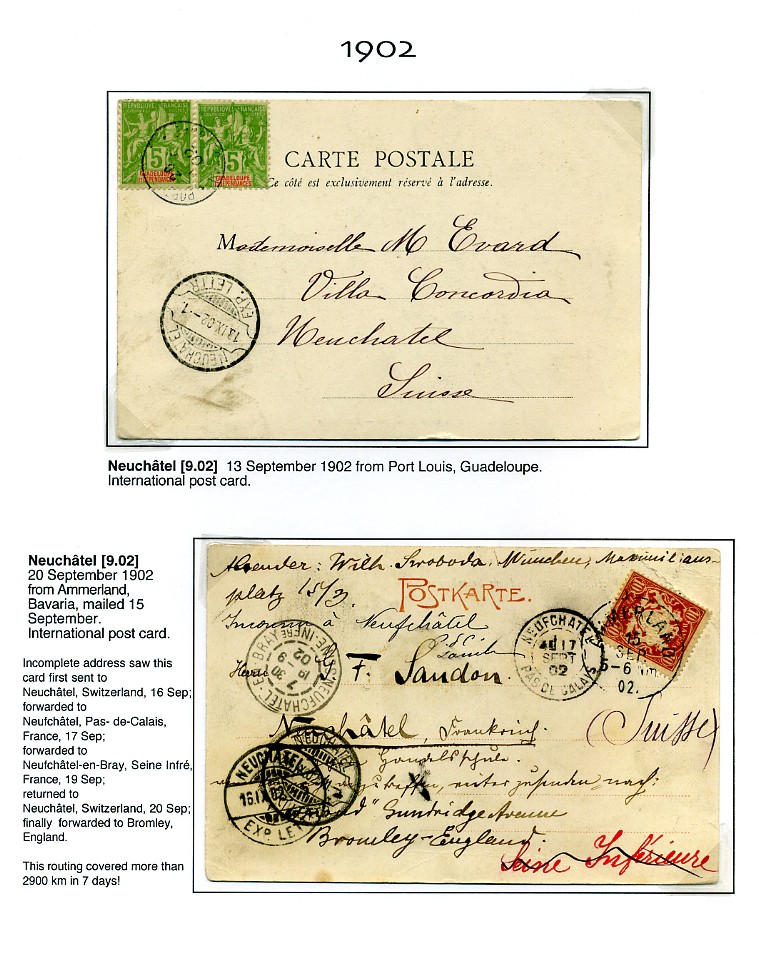 1902
RÉPUBLIQUE FRANÇAISE RÉPUBLIQUE FRANÇAISE
5 5
GUADELOUPE ET DÉPENDANCES GUADELOUPE ET DÉPENDANCES
CARTE POSTALE
Ce côté est exclusivement réservé à l'adresse.
Mademoiselle M Evard
Villa Concordia
Neuchatel
Suisse
NEUCHATEL
13.IX.02-1
EXP. LETTR.
Neuchâtel [9.02] 13 September 1902 from Port Louis, Guadeloupe.
International post card.
Neuchâtel [9.02]
20 September 1902
from Ammerland,
Bavaria, mailed 15
September.
International post card.
Incomplete address saw this
card first sent to
Neuchâtel, Switzerland, 16 Sep;
forwarded to
Neufchâtel, Pas- de-Calais,
France, 17 Sep;
forwarded to
Neufchâtel-en-Bray, Seine Infré,
France, 19 Sep;
returned to
Neuchâtel, Switzerland, 20 Sep;
finally forwarded to Bromley,
England.
This routing covered more than
2900 km in 7 days!
Absender: Wilh. Swoboda, München, Maximilians-
platz 15/3.
POSTKARTE.
Inconnu à Neufchâtel
Herrn F. Sandon.
Neuchâtel, Frankreich.
(Suisse)
Handelsschule.
nachzusenden nach:
Sundridge Avenue
Bromley-England.
Seine Inférieure
NEUFCHATEL
17
SEPT
02
PAS DE CALAIS
AMMERLAND
15
SEP.
5-6
02.
NEUFCHATEL-EN-BRAY SEINE-INFRE
7 30
19 - 9
02
NEUCHATEL
16.IX.02
EXP. LETTR.